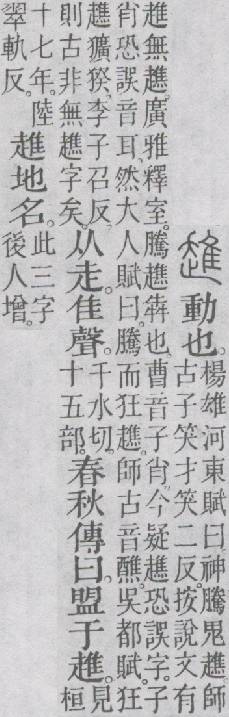 趡動也。楊雄河東賦曰神騰鬼趡師
古子笑才笑二反。按說文有
趡無趭。廣雅釋室。騰趡犇也。曹音子肖。今疑趡恐誤字。子
肖恐誤音耳。然大人賦曰。騰而狂趭。師古音醮。吳都賦。狂
趭獷猤。李子召反。
則古非無趭字矣。从走隹聲。千水切。十五部。春秋傳曰。盟于趡。見桓
十七年。陸
翠軌反。趡地名。此三字
後人增。